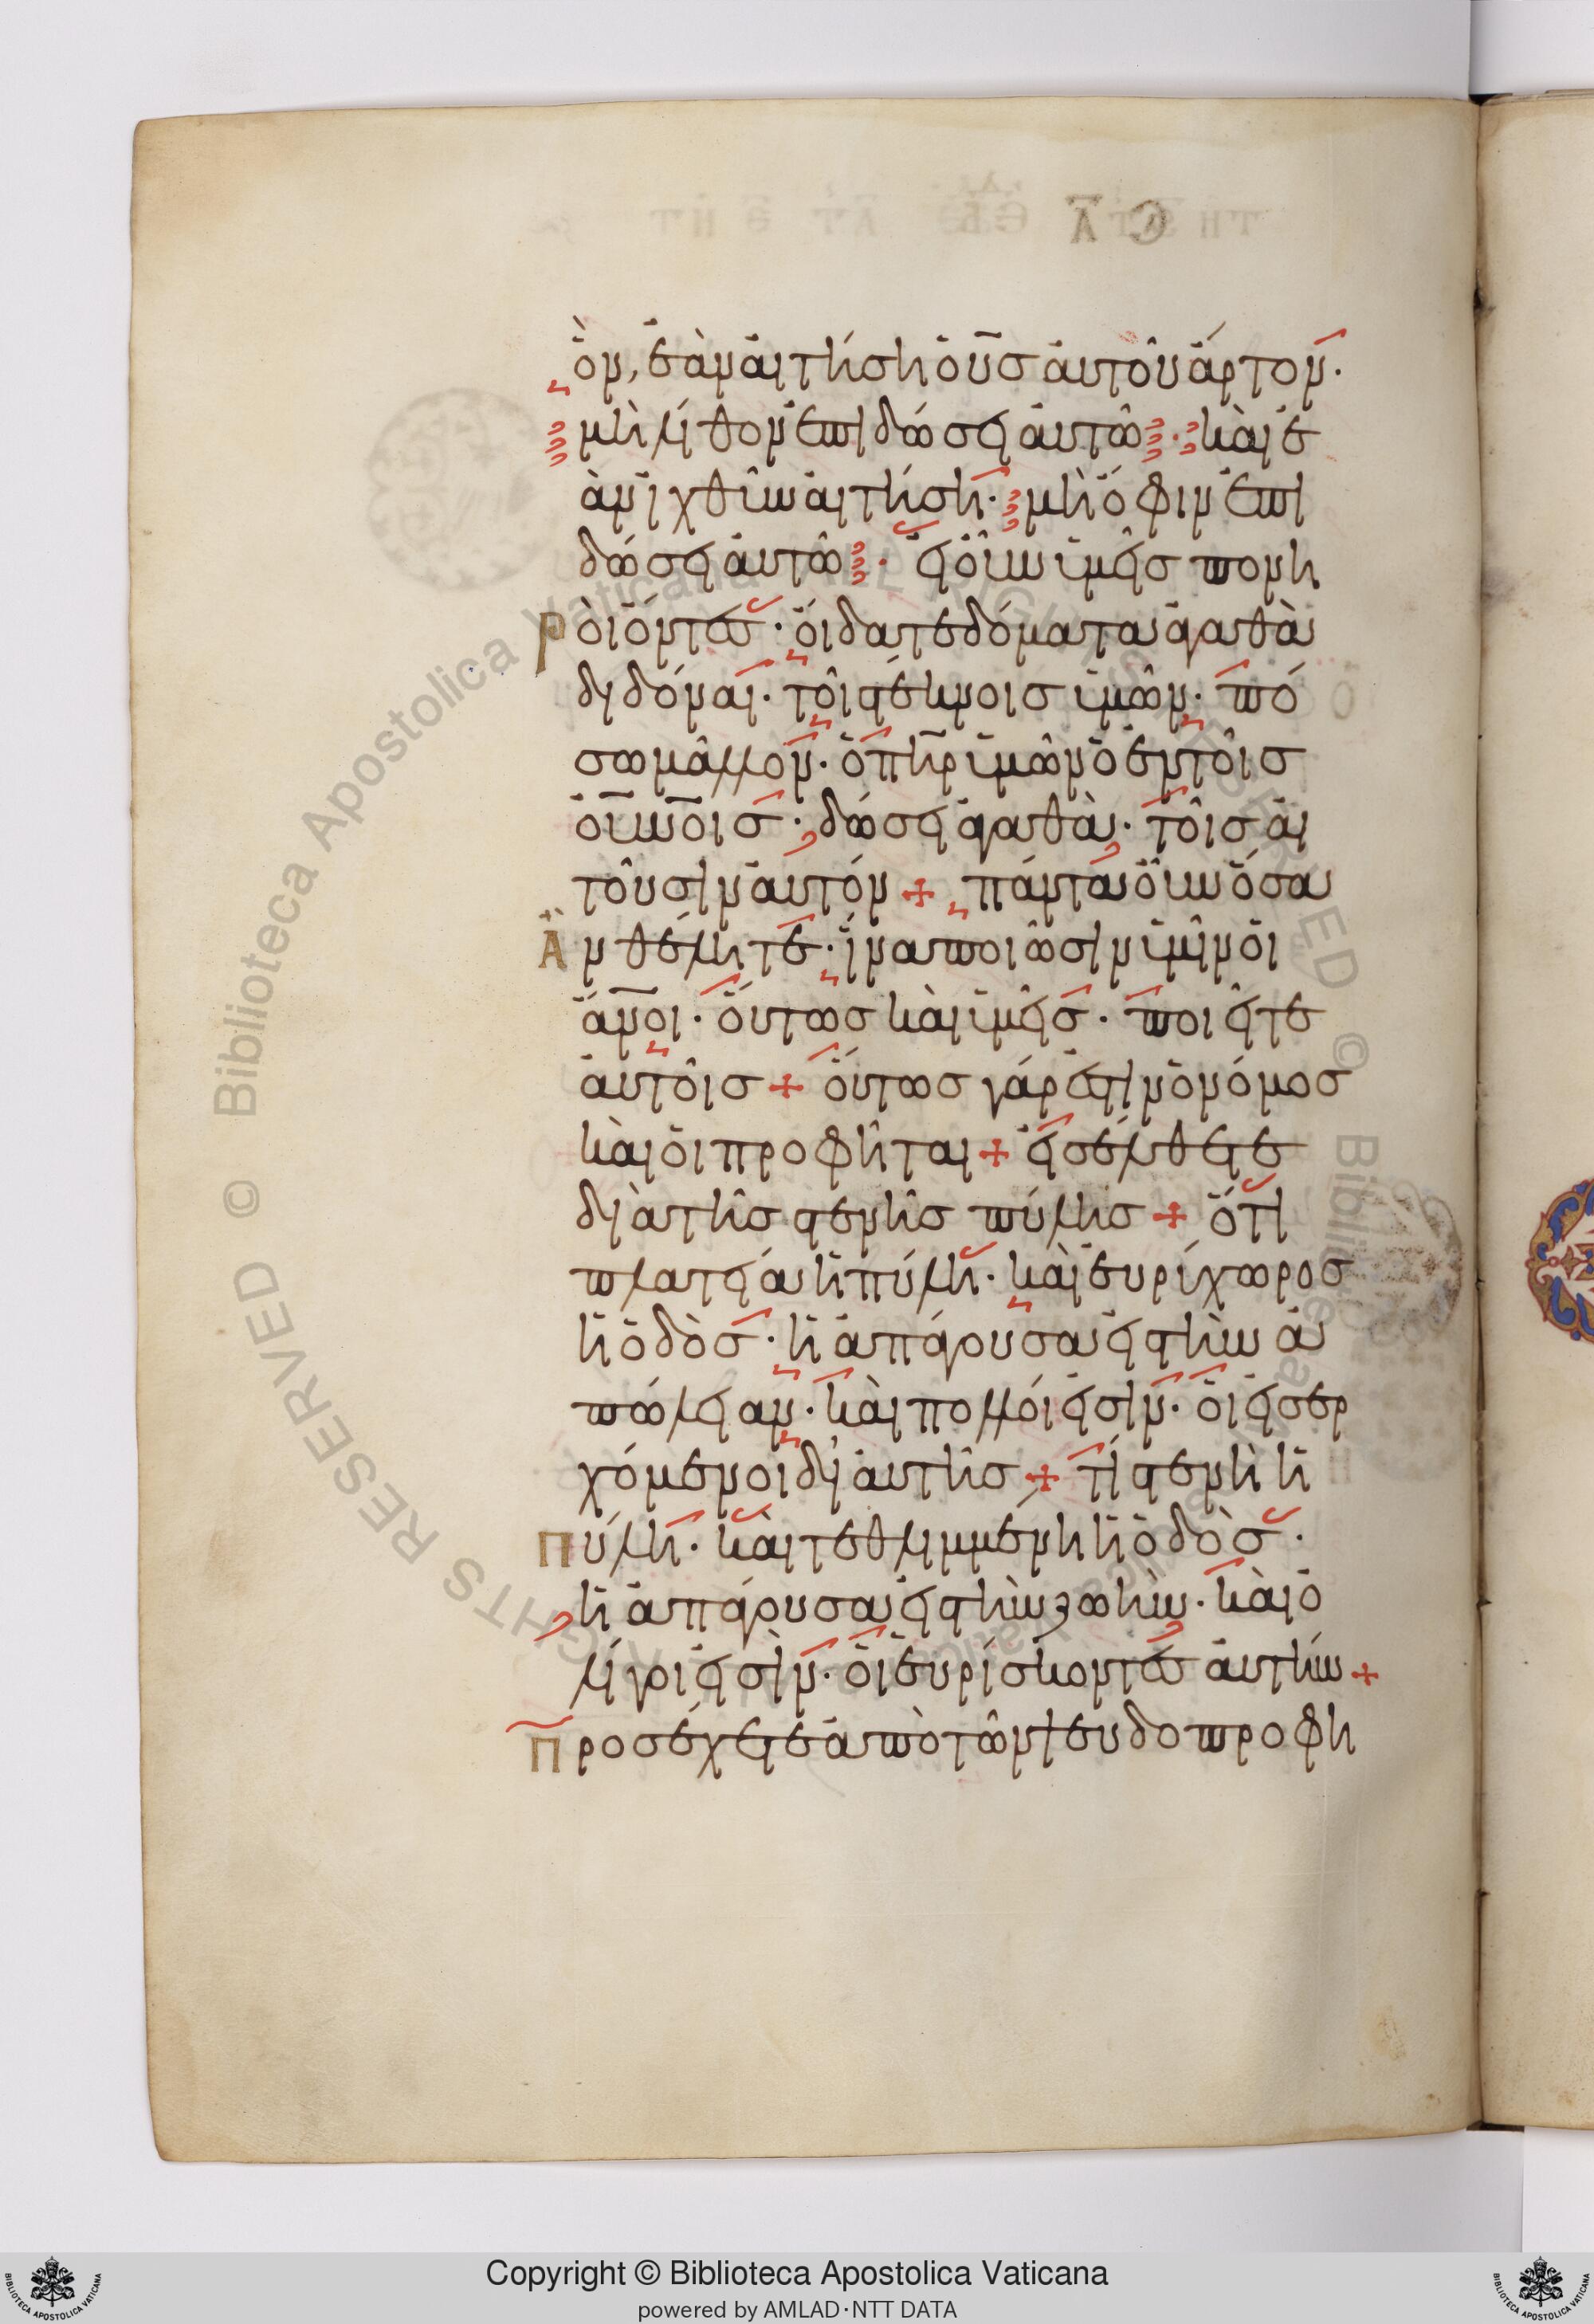 ὃν, ἐὰν αἰτήση ὁ υἱὸς αὐτοῦ ἄρτον·
μὴ λίθον ἐπιδώσει αὐτῶ· καὶ ἐ
ὰν ἰχθὺν αἰτήση· μὴ ὄφιν ἐπι
δώσει αὐτῶ· εἰ οὖν ὑμεῖς πονη
ροὶ ὄντες· οἴδατε δόματα ἀγαθὰ
διδόναι· τοῖς τέκνοις ὑμῶν· πό
σω μᾶλλον· ὁ πηρ ὑμῶν ὁ ἐν τοῖς
οὐνοις· δώσει ἀγαθὰ· τοῖς αἰ
τοῦσιν αὐτόν + πάντα οὖν ὅσα
ἂν θέλητε· ἵνα ποιῶσιν ὑμῖν οἱ
ἄνοι· οὕτως καὶ ὑμεῖς· ποιεῖτε
αὐτοῖς + οὕτως γάρ ἐστιν ὁ νόμος
καὶ οἱ προφῆται + εἰσέλθετε
διὰ τῆς στενῆς πύλης + ὅτι
πλατεῖα ἡ πύλη· καὶ εὐρύχωρος
ἡ ὁδὸς· ἡ ἀπάγουσα εἰς τὴν ἀ
πώλειαν· καὶ πολλοί εἰσιν· οἱ εἰσερ
χόμενοι δι αὐτῆς + τί στενὴ ἡ
πύλη· καὶ τεθλιμμένη ἡ ὁδὸς·
ἡ ἀπάγουσα εἰς τὴν ζωὴν· καὶ ὀ
λίγοι εἰσὶν· οἱ εὑρίσκοντες αὐτήν +
Προσέχετε ἀπὸ τῶν ψευδοπροφη
Copyright © Biblioteca Apostolica Vaticana
powered by AMLAD·NTT DATA